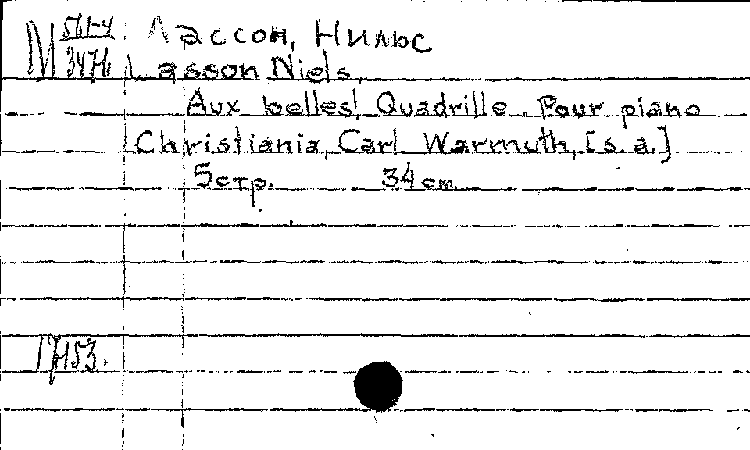 М 561-4 / 3476 Лассон, Нильс
Lasson Niels.
Aux belles! Quadrille. Pour piano
Christiania, Carl Warmuth, [s.a.]
5стр. 34 см